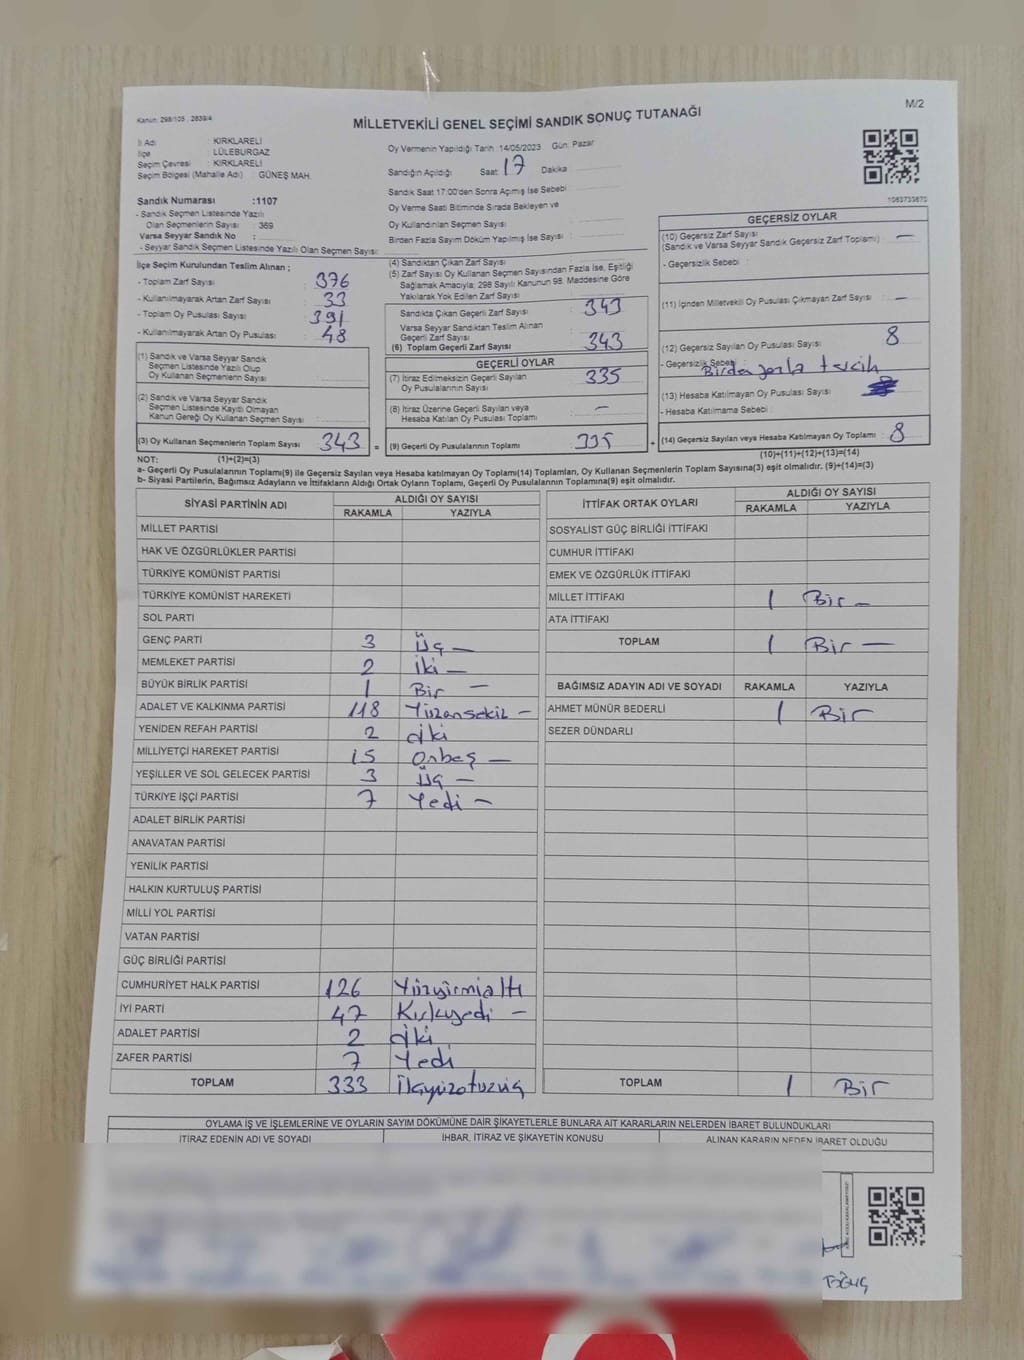 M/2
Kanun: 298/105 , 2839/4
MİLLETVEKİLİ GENEL SEÇİMİ SANDIK SONUÇ TUTANAĞI
İl Adı : KIRKLARELİ
İlçe : LÜLEBURGAZ
Seçim Çevresi : KIRKLARELİ
Seçim Bölgesi (Mahalle Adı) : GÜNEŞ MAH.
Oy Vermenin Yapıldığı Tarih :14/05/2023 Gün: Pazar
Sandığın Açıldığı Saat: 17 Dakika
Sandık Saat 17:00'den Sonra Açımış İse Sebebi :
Oy Verme Saati Bitiminde Sırada Bekleyen ve
Oy Kullandırılan Seçmen Sayısı :
Birden Fazla Sayım Döküm Yapılmış İse Sayısı :
Sandık Numarası :1107
- Sandık Seçmen Listesinde Yazılı
Olan Seçmenlerin Sayısı : 369
Varsa Seyyar Sandık No :
- Seyyar Sandık Seçmen Listesinde Yazılı Olan Seçmen Sayısı:
İlçe Seçim Kurulundan Teslim Alınan ;
- Toplam Zarf Sayısı : 376
- Kullanılmayarak Artan Zarf Sayısı : 33
- Toplam Oy Pusulası Sayısı : 391
- Kullanılmayarak Artan Oy Pusulası : 48
(1) Sandık ve Varsa Seyyar Sandık
Seçmen Listesinde Yazılı Olup
Oy Kullanan Seçmenlerin Sayısı :
(2) Sandık ve Varsa Seyyar Sandık
Seçmen Listesinde Kayıtlı Olmayan
Kanun Gereği Oy Kullanan Seçmen Sayısı :
(3) Oy Kullanan Seçmenlerin Toplam Sayısı : 343 =
(4) Sandıktan Çıkan Zarf Sayısı :
(5) Zarf Sayısı Oy Kullanan Seçmen Sayısından Fazla İse, Eşitliği
Sağlamak Amacıyla; 298 Sayılı Kanunun 98. Maddesine Göre
Yakılarak Yok Edilen Zarf Sayısı :
Sandıkta Çıkan Geçerli Zarf Sayısı : 343
Varsa Seyyar Sandıktan Teslim Alınan
Geçerli Zarf Sayısı :
(6) Toplam Geçerli Zarf Sayısı : 343
GEÇERLİ OYLAR
(7) İtiraz Edilmeksizin Geçerli Sayılan
Oy Pusulalarının Sayısı : 335
(8) İtiraz Üzerine Geçerli Sayılan veya
Hesaba Katılan Oy Pusulası Toplamı : —
(9) Geçerli Oy Pusulalarının Toplamı : 335 +
1083733870
GEÇERSİZ OYLAR
(10) Geçersiz Zarf Sayısı
(Sandık ve Varsa Seyyar Sandık Geçersiz Zarf Toplamı) : —
- Geçersizlik Sebebi :
(11) İçinden Milletvekili Oy Pusulası Çıkmayan Zarf Sayısı : —
(12) Geçersiz Sayılan Oy Pusulası Sayısı : 8
- Geçersizlik Sebebi : Birden fazla tercih
(13) Hesaba Katılmayan Oy Pusulası Sayısı :
- Hesaba Katılmama Sebebi :
(14) Geçersiz Sayılan veya Hesaba Katılmayan Oy Toplamı : 8
NOT: (1)+(2)=(3) (10)+(11)+(12)+(13)=(14)
a- Geçerli Oy Pusulalarının Toplamı(9) ile Geçersiz Sayılan veya Hesaba katılmayan Oy Toplamı(14) Toplamları, Oy Kullanan Seçmenlerin Toplam Sayısına(3) eşit olmalıdır. (9)+(14)=(3)
b- Siyasi Partilerin, Bağımsız Adayların ve İttifakların Aldığı Ortak Oyların Toplamı, Geçerli Oy Pusulalarının Toplamına(9) eşit olmalıdır.
SİYASİ PARTİNİN ADI ALDIĞI OY SAYISI
RAKAMLA YAZIYLA
MİLLET PARTİSİ
HAK VE ÖZGÜRLÜKLER PARTİSİ
TÜRKİYE KOMÜNİST PARTİSİ
TÜRKİYE KOMÜNİST HAREKETİ
SOL PARTİ
GENÇ PARTİ 3 Üç —
MEMLEKET PARTİSİ 2 İki —
BÜYÜK BİRLİK PARTİSİ 1 Bir —
ADALET VE KALKINMA PARTİSİ 118 Yüzonsekiz —
YENİDEN REFAH PARTİSİ 2 iki
MİLLİYETÇİ HAREKET PARTİSİ 15 Onbeş —
YEŞİLLER VE SOL GELECEK PARTİSİ 3 Üç —
TÜRKİYE İŞÇİ PARTİSİ 7 Yedi —
ADALET BİRLİK PARTİSİ
ANAVATAN PARTİSİ
YENİLİK PARTİSİ
HALKIN KURTULUŞ PARTİSİ
MİLLİ YOL PARTİSİ
VATAN PARTİSİ
GÜÇ BİRLİĞİ PARTİSİ
CUMHURİYET HALK PARTİSİ 126 Yüzyirmialtı
İYİ PARTİ 47 Kırkyedi —
ADALET PARTİSİ 2 iki
ZAFER PARTİSİ 7 Yedi
TOPLAM 333 üçyüzotuzüç
İTTİFAK ORTAK OYLARI ALDIĞI OY SAYISI
RAKAMLA YAZIYLA
SOSYALİST GÜÇ BİRLİĞİ İTTİFAKI
CUMHUR İTTİFAKI
EMEK VE ÖZGÜRLÜK İTTİFAKI
MİLLET İTTİFAKI 1 Bir —
ATA İTTİFAKI
TOPLAM 1 Bir —
BAĞIMSIZ ADAYIN ADI VE SOYADI RAKAMLA YAZIYLA
AHMET MÜNÜR BEDERLİ 1 Bir
SEZER DÜNDARLI
TOPLAM 1 Bir
OYLAMA İŞ VE İŞLEMLERİNE VE OYLARIN SAYIM DÖKÜMÜNE DAİR ŞİKAYETLERLE BUNLARA AİT KARARLARIN NELERDEN İBARET BULUNDUKLARI
İTİRAZ EDENİN ADI VE SOYADI İHBAR, İTİRAZ VE ŞİKAYETİN KONUSU ALINAN KARARIN NEDEN İBARET OLDUĞU